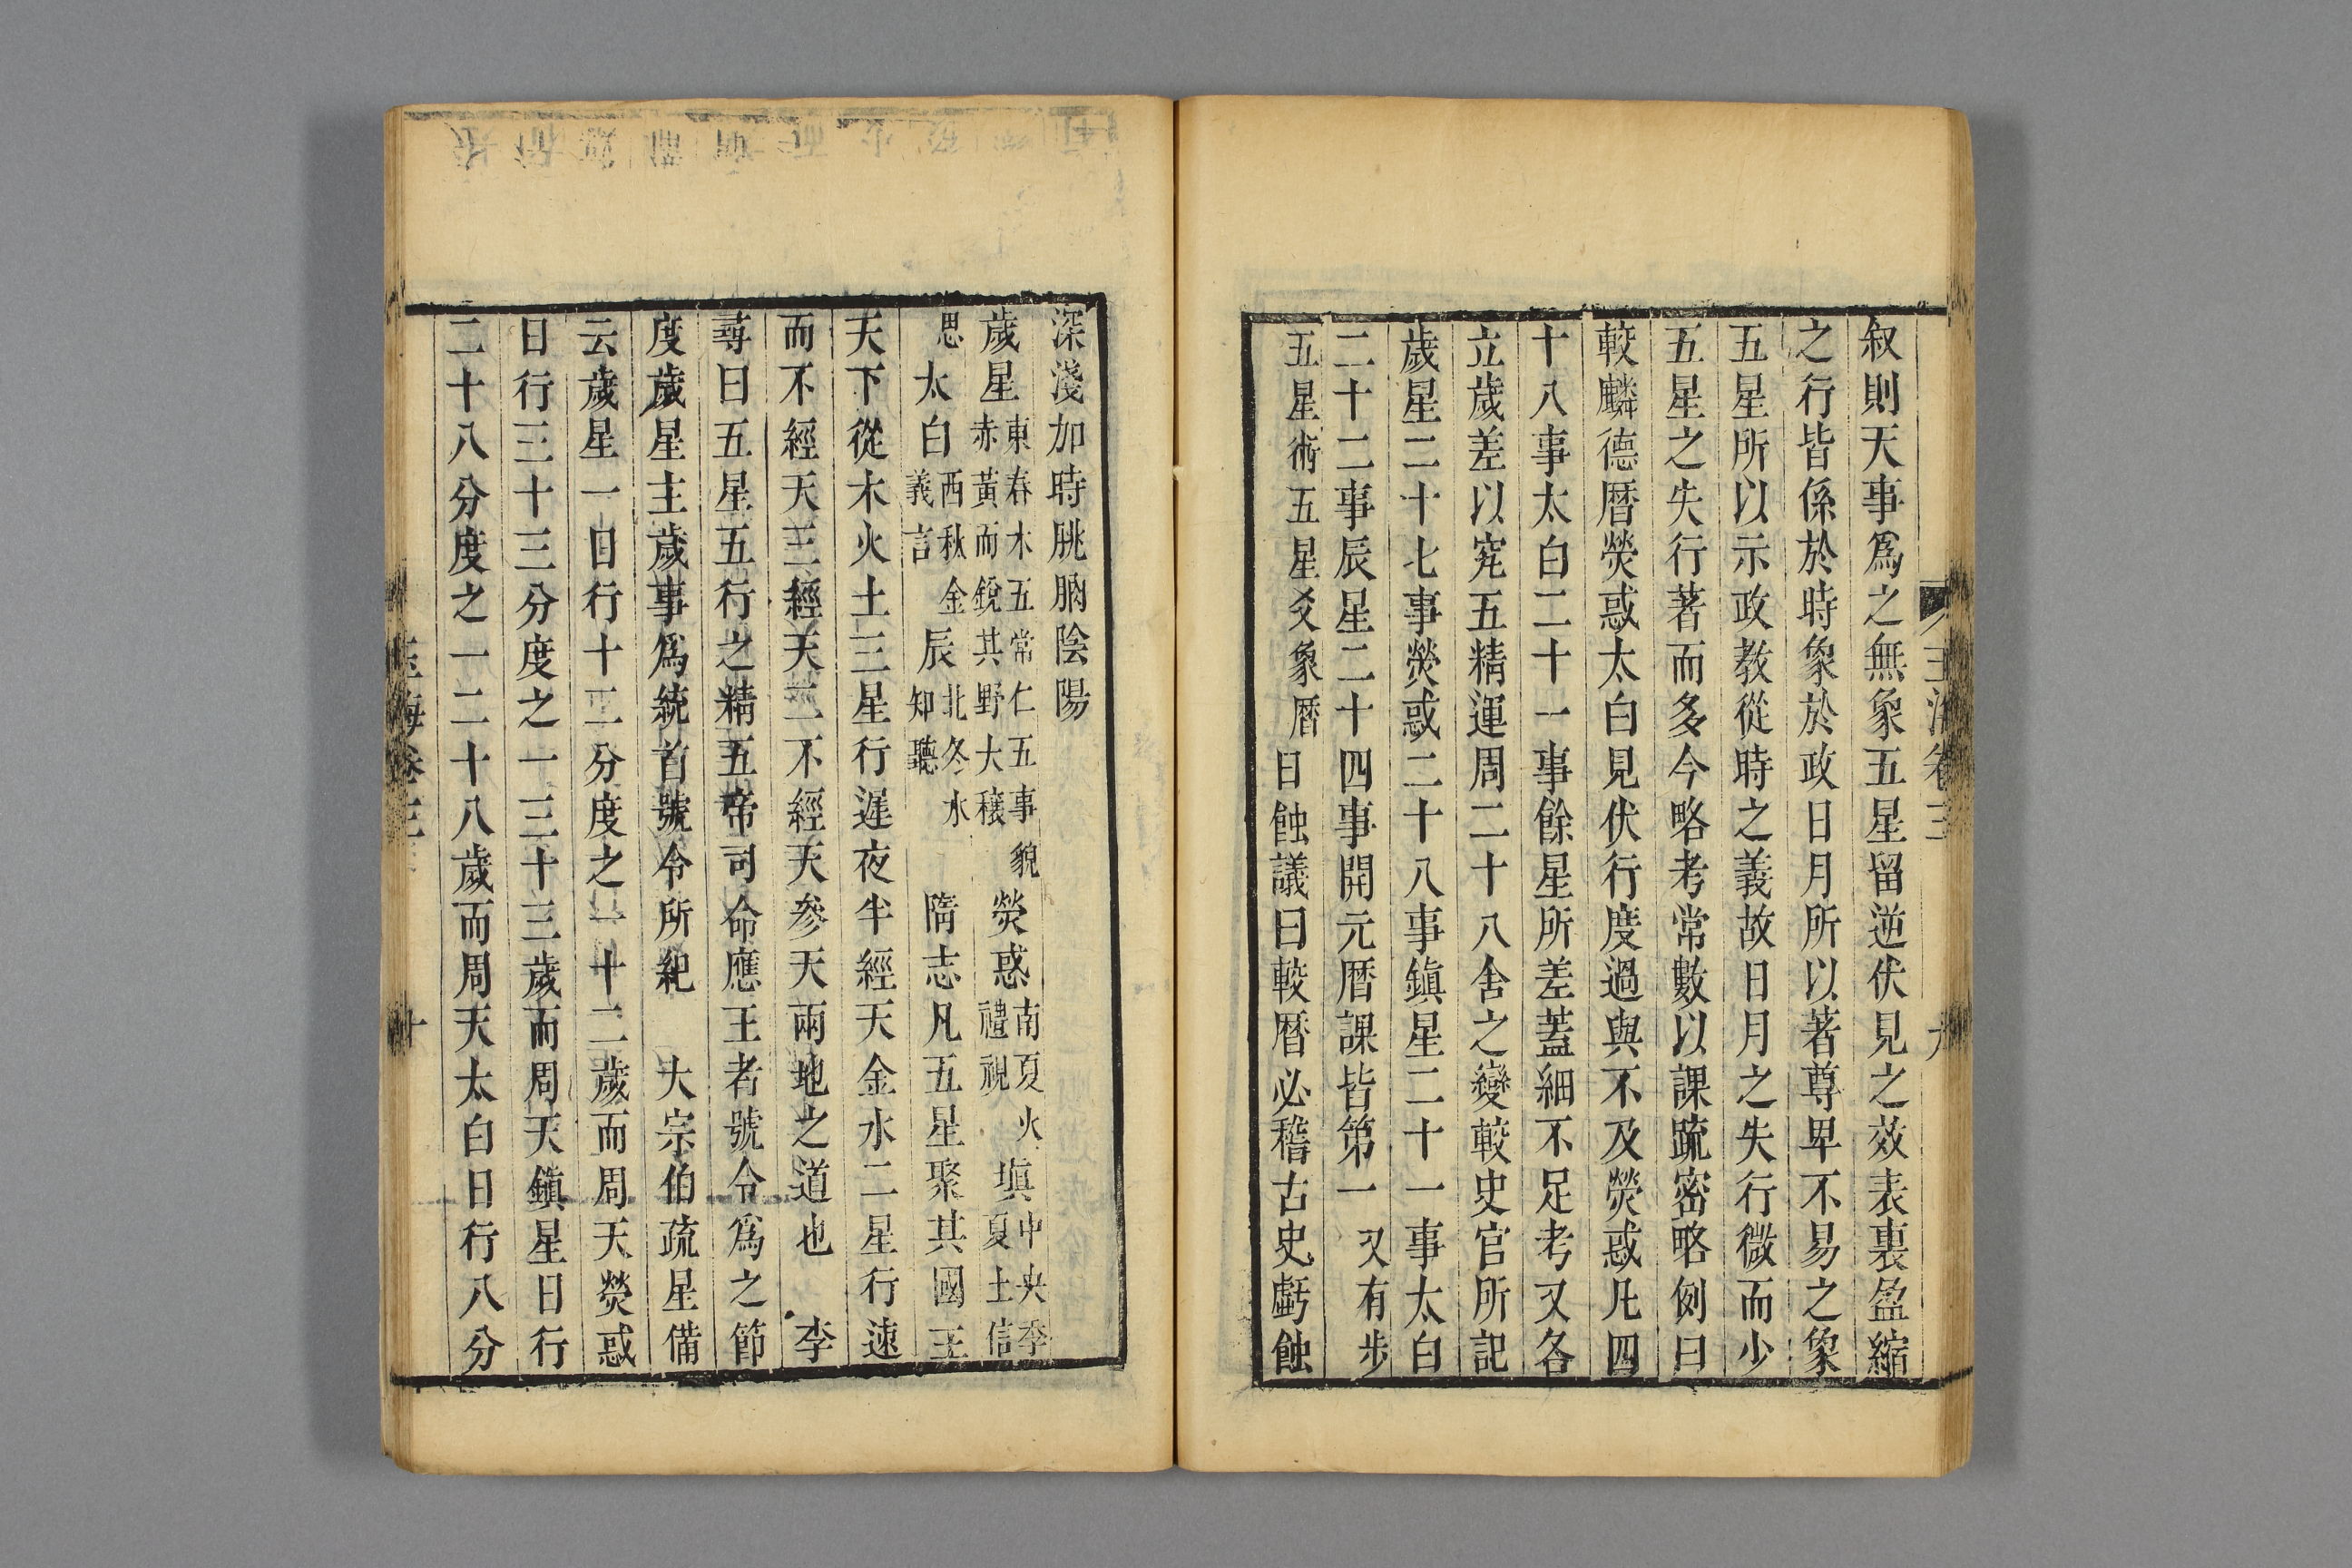 叙則天事爲之無象五星留逆伏見之效表裏盈縮
之行皆係於時象於政日月所以著尊卑不易之象
五星所以示政教從時之義故日月之失行微而少
五星之失行著而多今略考常數以課疏密略例曰
較麟德曆熒惑太白見伏行度過與不及熒惑凡四
十八事太白二十一事餘星所差蓋細不足考又各
立歲差以究五精運周二十八舍之變較史官所記
歲星二十七事熒惑二十八事鎮星二十一事太白
二十二事辰星二十四事開元曆課皆第一又有步
五星術五星爻象曆日蝕議曰較曆必稽古史虧蝕
深淺加時朓朒陰陽
歲星東春木五常仁五事貌
赤黃而銳其野大穰
熒惑南夏火
禮視
塡中央季
夏土信
思太白西秋金
義言
辰北冬水
知聽
隋志凡五星聚其國王
天下從木火土三星行遲夜半經天金水二星行速
而不經天三經天二不經天參天兩地之道也李
尋曰五星五行之精五帝司命應王者號令爲之節
度歲星主歲事爲統首號令所紀大宗伯疏星備
云歲星一日行十二分度之一十二歲而周天熒惑
日行三十三分度之一三十三歲而周天鎮星日行
二十八分度之一二十八歲而周天太白日行八分
玉海卷三
十